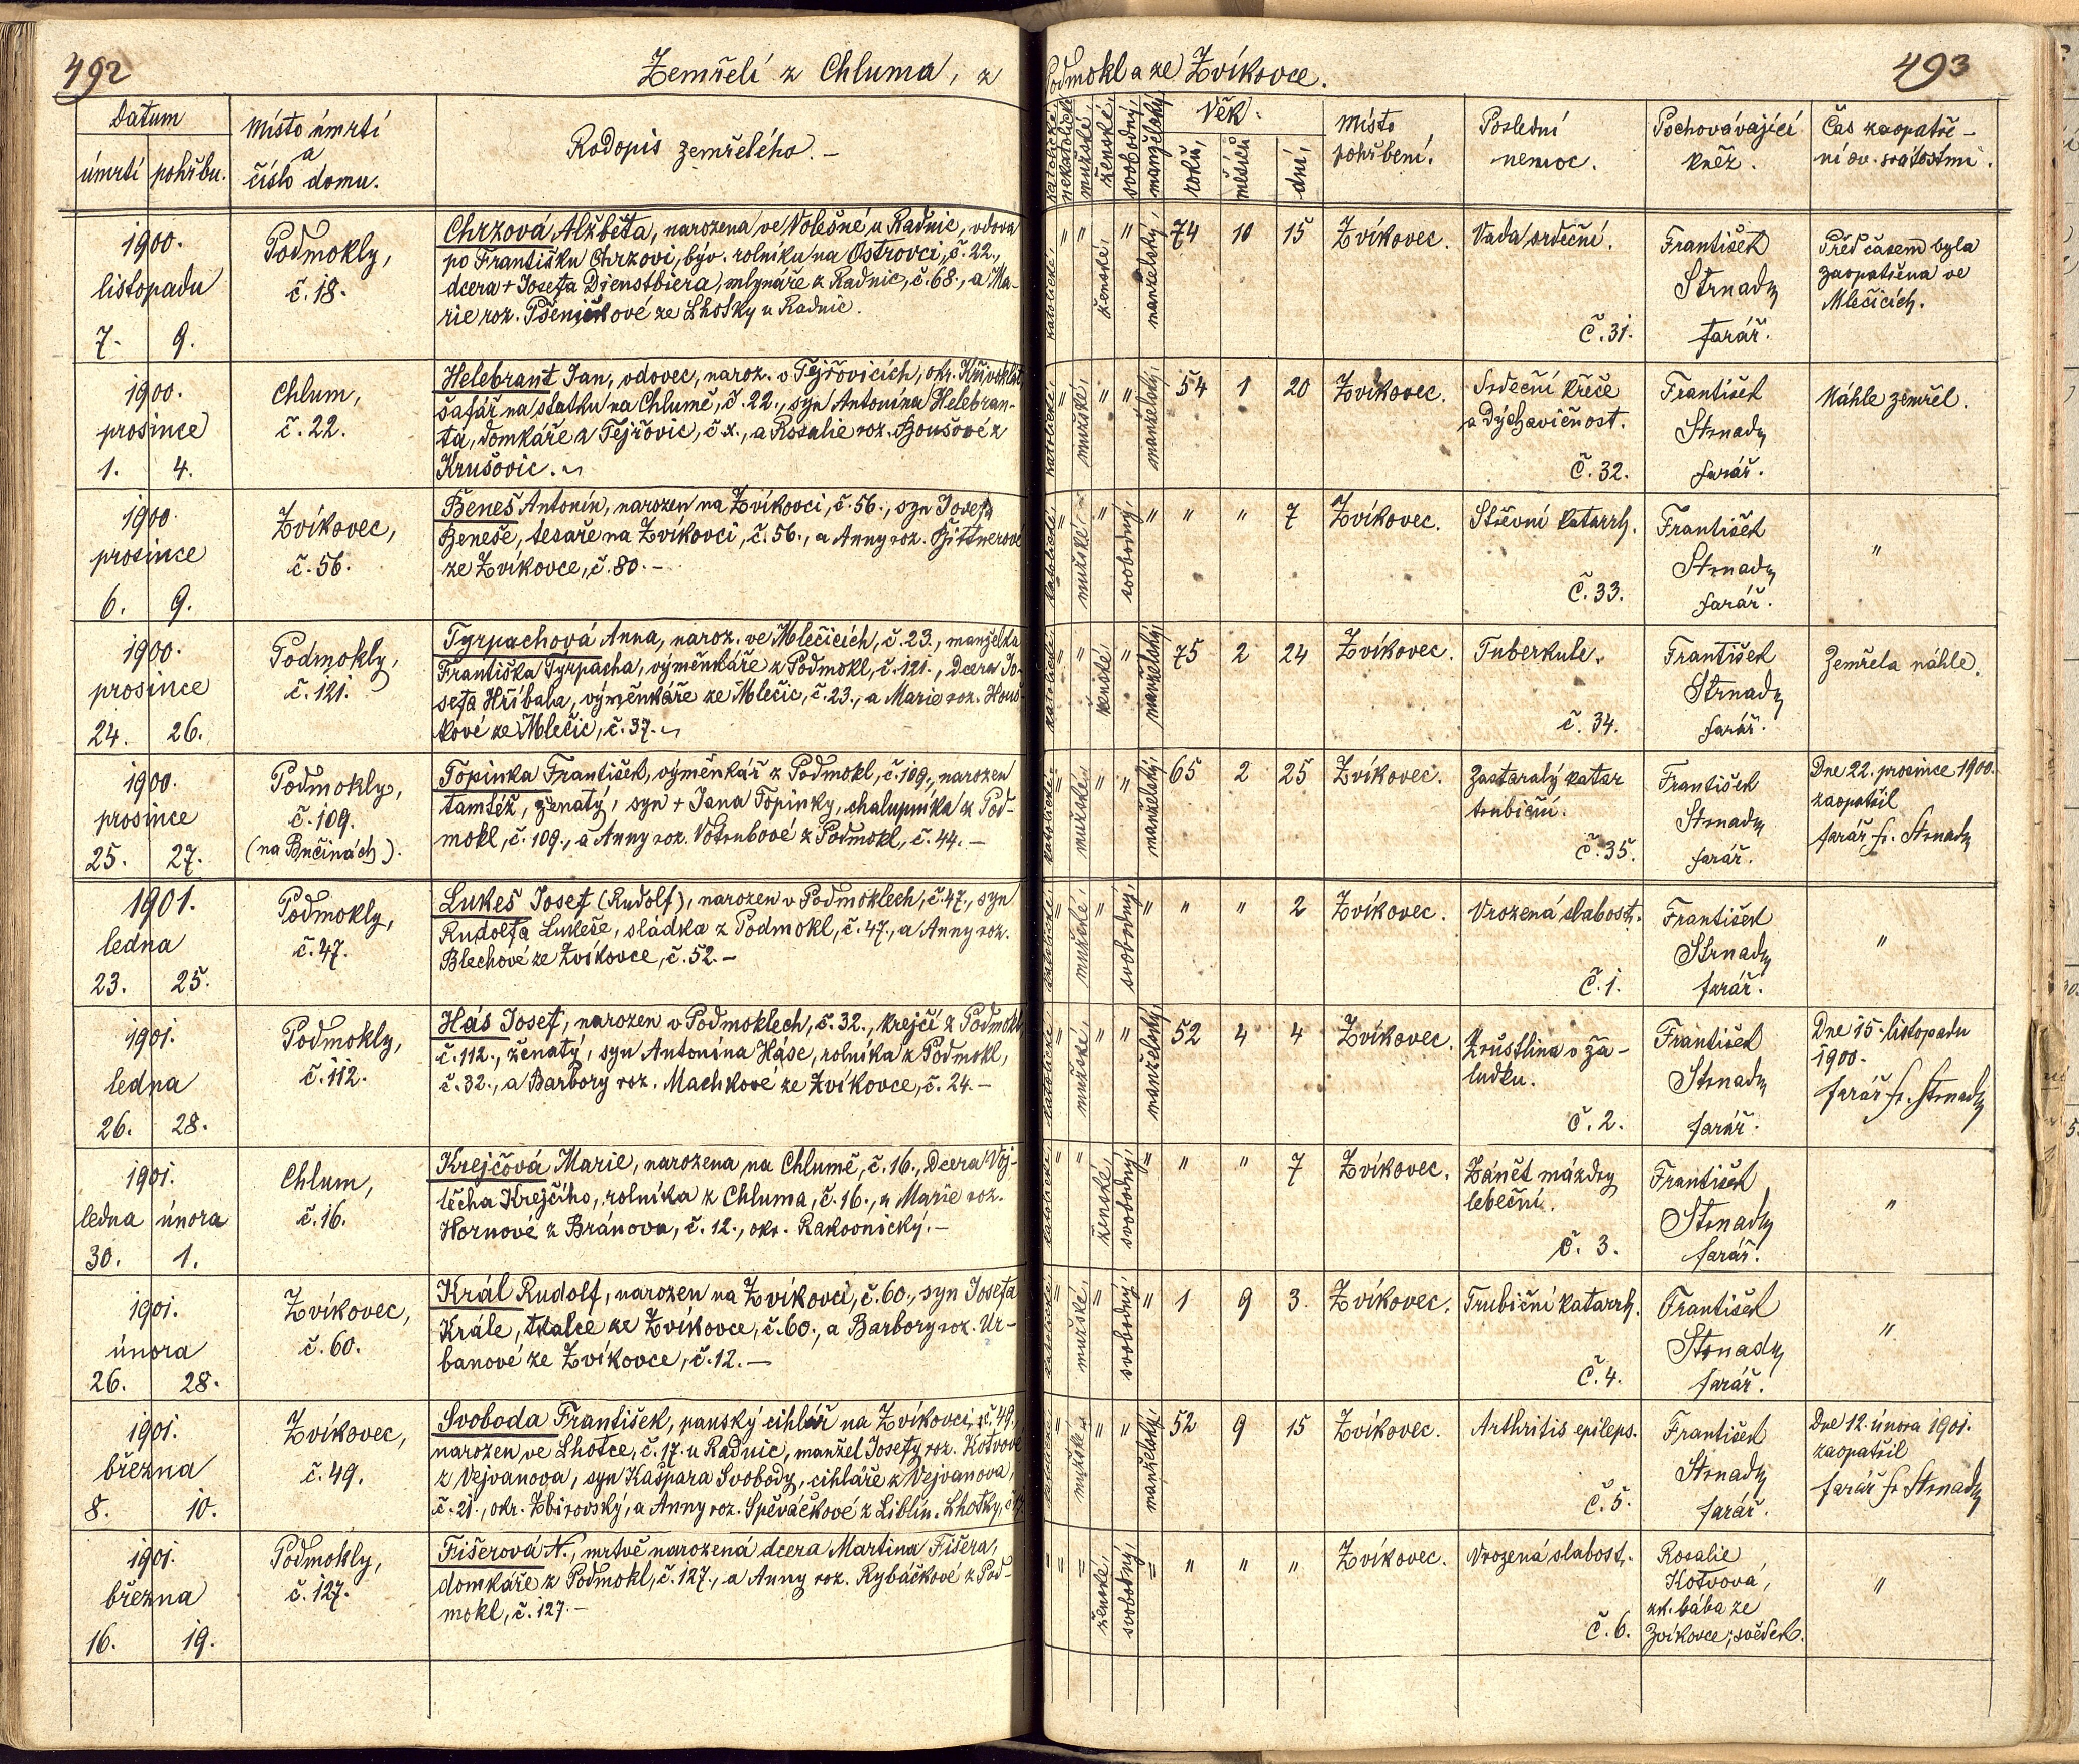 492
Zemřelí z Chluma, z
Podmokl a ze Zvíkovce.
493
Datum
úmrtí
pohřbu.
Místo úmrtí
a
číslo domu.
Rodopis zemřelého. –
katolické,
nekatolické
mužské,
ženské,
svobodný,
manželský,
Věk.
roků,
měsíců
dní,
Místo
pohřbení.
Poslední
nemoc.
Pochovávající
kněz.
Čas zaopatře-
ní sv. svátostmi.
1900.
listopadu
7. 9.
Podmokly,
č. 18.
Chrzová Alžběta, narozena ve Volešné u Radnic, vdova
po Františku Chrzovi, býv. rolníku na Ostrovci, č. 22.,
dcera + Josefa Dienstbiera, mlynáře z Radnic, č. 68., a Ma-
rie roz. Pšeničkové ze Lhotky u Radnic.
katolické " " ženské, " manželský, 74 10 15 Zvíkovec. Vada srdeční.
č. 31.
František
Strnady
farář.
Před časem byla
zaopatřena ve
Mlečicích.
1900.
prosince
1. 4.
Chlum,
č. 22.
Helebrant Jan, vdovec, naroz. v Tejřovicích, okr. Křivoklát,
šafář na statku na Chlumě, č. 22., syn Antonína Helebran-
ta, domkáře z Tejřovic, č. x., a Rosalie roz. Boušové z
Krušovic.
katolické " mužské, " " manželský, 54 1 20 Zvíkovec. Srdeční křeče
a dýchavičnost.
č. 32.
František
Strnady
farář.
Náhle zemřel.
1900.
prosince
6. 9.
Zvíkovec,
č. 56.
Beneš Antonín, narozen na Zvíkovci, č. 56., syn Josefa
Beneše, tesaře na Zvíkovci, č. 56., a Anny roz. Bittnerové
ze Zvíkovce, č. 80. –
katolické " mužské " svobodný, " " " 7 Zvíkovec. Střevní katarrh.
č. 33.
František
Strnady
farář.
"
1900.
prosince
24. 26.
Podmokly,
č. 121.
Tyrpachová Anna, naroz. ve Mlečicích, č. 23., manželka
Františka Tyrpacha, výměnkáře z Podmokl, č. 121., dcera Jo-
sefa Hříbala, výměnkáře ze Mlečic, č. 23., a Marie roz. Houš-
kové ze Mlečic, č. 37.
katolické " " ženské " manželský, 75 2 24 Zvíkovec. Tuberkule.
č. 34.
František
Strnady
farář.
Zemřela náhle.
1900.
prosince
25. 27.
Podmokly,
č. 109.
(na Bučinách).
Topinka František, výměnkář z Podmokl, č. 109., narozen
tamtéž, ženatý, syn + Jana Topinky, chalupníka z Pod-
mokl, č. 109., a Anny roz. Votrubové z Podmokl, č. 44. –
katolické " mužské " " manželský, 65 2 25 Zvíkovec. Zastaralý katar
trubiční.
č. 35.
František
Strnady
farář.
Dne 22. prosince 1900.
zaopatřil
farář Fr. Strnady
1901.
ledna
23. 25.
Podmokly,
č. 47.
Lukeš Josef (Rudolf), narozen v Podmoklech, č. 47., syn
Rudolfa Lukeše, sládka z Podmokl, č. 47., a Anny roz.
Blechové ze Zvíkovce, č. 52. –
katolické " mužské, " svobodný, " " " 2 Zvíkovec. Vrozená slabost.
č. 1.
František
Strnady
farář.
"
1901.
ledna
26. 28.
Podmokly,
č. 112.
Hás Josef, narozen v Podmoklech, č. 32., krejčí z Podmokl,
č. 112., ženatý, syn Antonína Háse, rolníka z Podmokl,
č. 32., a Barbory roz. Machkové ze Zvíkovce, č. 24. –
katolické " mužské " " manželský, 52 4 4 Zvíkovec. Zrústlina v ža-
ludku.
č. 2.
František
Strnady
farář.
Dne 15. listopadu
1900.
farář Fr. Strnady
1901.
ledna února
30. 1.
Chlum,
č. 16.
Krejčová Marie, narozena na Chlumě, č. 16., dcera Voj-
těcha Krejčího, rolníka z Chluma, č. 16., a Marie roz.
Hornové z Bránova, č. 12., okr. Rakovnický. –
katolické " " ženské, svobodný, " " " 7 Zvíkovec. Zánět mázdry
lebeční.
č. 3.
František
Strnady
farář.
"
1901.
února
26. 28.
Zvíkovec,
č. 60.
Král Rudolf, narozen na Zvíkovci, č. 60., syn Josefa
Krále, tkalce ze Zvíkovce, č. 60., a Barbory roz. Ur-
banové ze Zvíkovce, č. 12. –
katolické " mužské, " svobodný, " 1 9 3. Zvíkovec. Trubiční katarrh.
č. 4.
František
Strnady
farář.
"
1901.
března
8. 10.
Zvíkovec,
č. 49.
Svoboda František, panský cihlář na Zvíkovci, č. 49.,
narozen ve Lhotce, č. 17. u Radnic, manžel Josefy roz. Kotvové
z Vejvanova, syn Kašpara Svobody, cihláře z Vejvanova,
č. 21., okr. Zbirovský, a Anny roz. Spěváčkové z Liblín. Lhotky, č. 17.
katolické " mužské " " manželský, 52 9 15 Zvíkovec. Arthritis epileps.
č. 5.
František
Strnady
farář.
Dne 12. února 1901.
zaopatřil
farář Fr. Strnady
1901.
března
16. 19.
Podmokly,
č. 127.
Fišerová N., mrtvě narozená dcera Martina Fišera,
domkáře z Podmokl, č. 127., a Anny roz. Rybáčkové z Pod-
mokl, č. 127. –
" " " ženské, svobodný, " " " " Zvíkovec. Vrozená slabost.
č. 6.
Rosalie
Kotvová,
zk. bába ze
Zvíkovce, svědek.
"